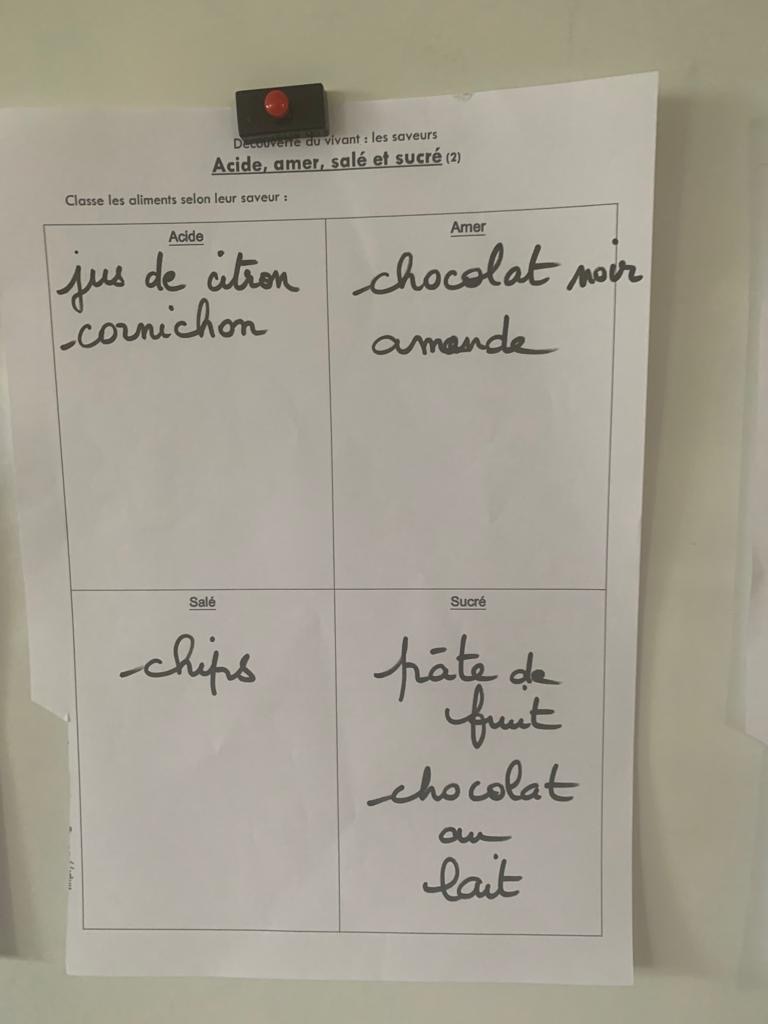 Découverte du vivant : les saveurs
Acide, amer, salé et sucré (2)
Classe les aliments selon leur saveur :
Acide
jus de citron
cornichon
Amer
chocolat noir
amande
Salé
chips
Sucré
pâte de
fruit
chocolat
au
lait